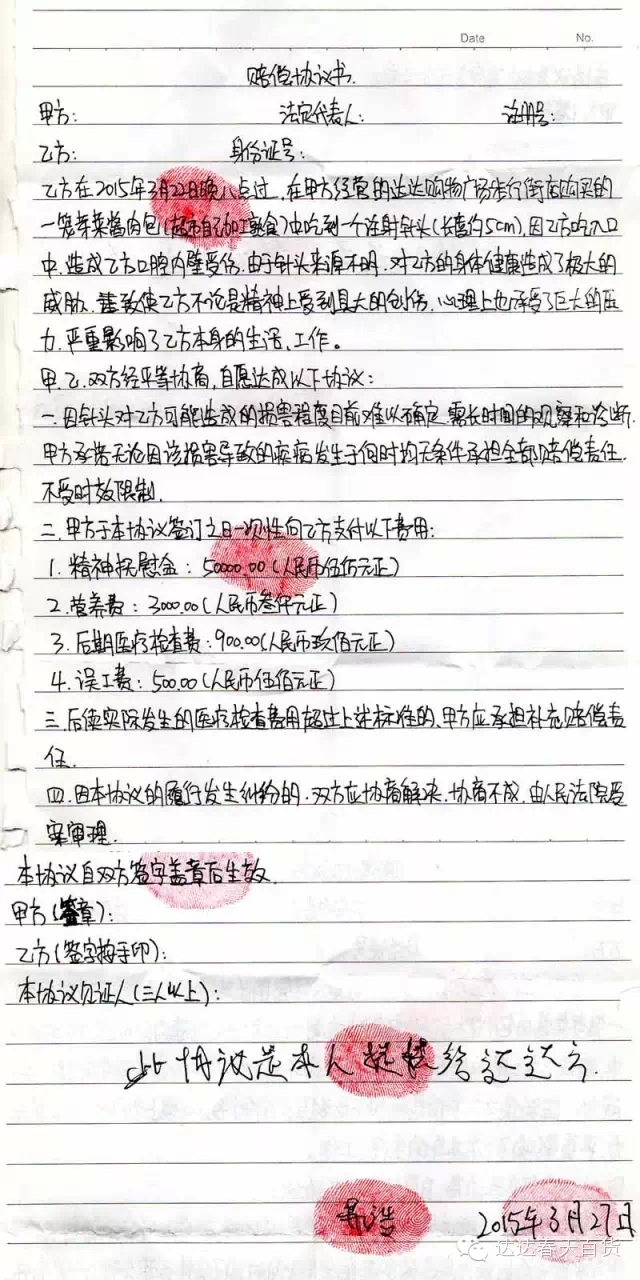 Date No.
赔偿协议书.
甲方: 法定代表人: 注册号:
乙方: 身份证号:
乙方在2015年3月22日晚八点过,在甲方经营的达达购物广场步行街店购买的
一笼芽菜酱肉包(超市自加工熟食)中吃到一个注射针头(长喜约5cm),因乙方吃入口
中,造成乙方口腔内壁受伤.由于针头来源不明.对乙方的身体健康造成了极大的
威胁.致使乙方不论是精神上受到巨大的创伤.心理上也承受了巨大的压
力.严重影响了乙方本身的生活、工作。
甲.乙.双方经平等协商,自愿达成以下协议:
一.因针头对乙方可能造成的损害程度目前难以确定.需长时间的观察和诊断.
甲方承诺无论因该损害导致的疾病发生于何时均无条件承担全部赔偿责任.
不受时效限制.
二.甲方于本协议签订之日一次性向乙方支付以下费用:
1.精神抚慰金:50000.00(人民币伍佰元正)
2.营养费:3000.00(人民币叁仟元正)
3.后期医疗检查费:900.00(人民币玖佰元正)
4.误工费:500.00(人民币伍佰元正)
三.后续实际发生的医疗检查费用超过上述标准的、甲方应承担补充赔偿责
任.
四.因本协议的履行发生纠纷的.双方应协商解决.协商不成.由人民法院受
案审理.
本协议自双方签字盖章后生效.
甲方(签章):
乙方(签字按手印):
本协议见证人(三人以上):
此协议是本人提供给达达方.
2015年3月27日
达达春天百货